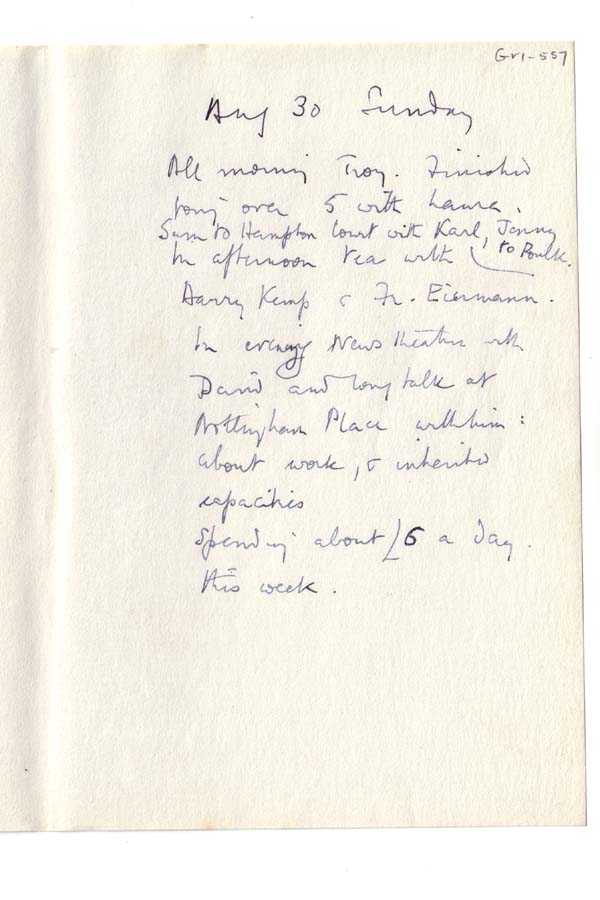 Gr1-557
Aug 30 Sunday
All morning Troy. Finished
going over 5 with Laura.
Sam to Hampton Court with Karl, Jenny
to Poulk.
In afternoon tea with
Harry Kemp & Fr. Eiermann.
In evening News Theatre with
David and long talk at
Nottingham Place with him:
about work, & inherited
capacities
Spending about £6 a day.
this week.